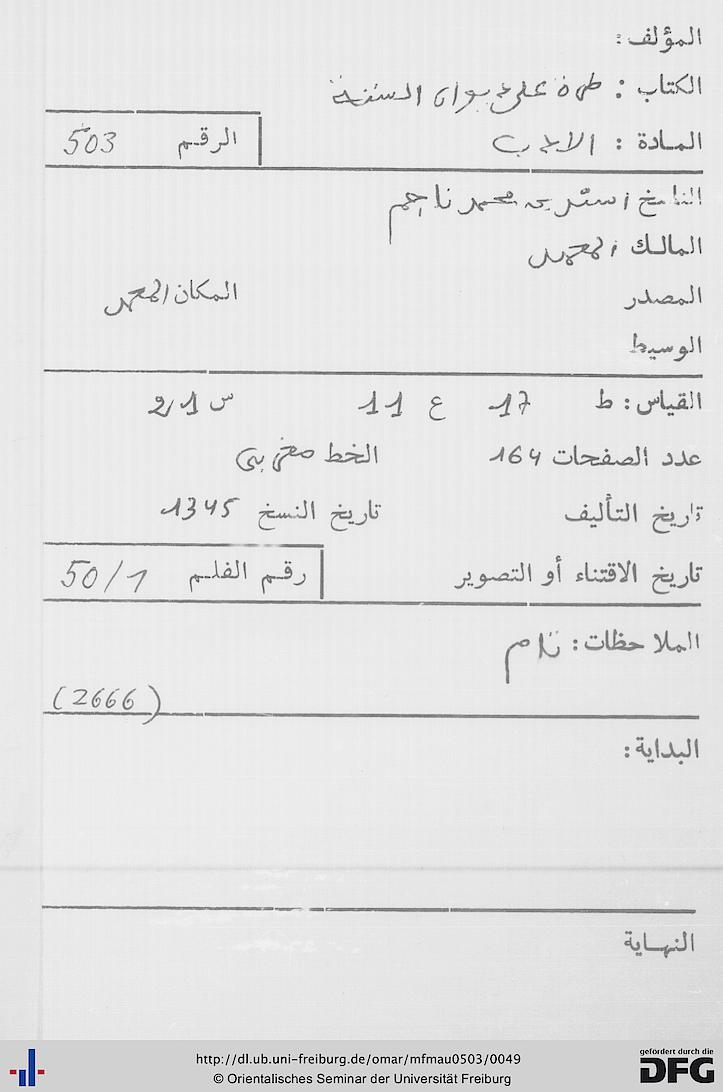 المؤلف:
الكتاب: طرة على ديوان الستة
المادة: الادب
الرقم 503
الناسخ محمد ناجم
المالك المعهد
المصدر
المكان المعهد
الوسيط
القياس: ط 17 ع 11 س 2,1
عدد الصفحات 164 الخط مغربي
تاريخ التأليف تاريخ النسخ 1345
تاريخ الاقتناء أو التصوير رقم الفلم 50/1
الملاحظات: تام
(2666)
البداية:
النهاية
http://dl.ub.uni-freiburg.de/omar/mfmau0503/0049
© Orientalisches Seminar der Universität Freiburg
gefördert durch die
DFG